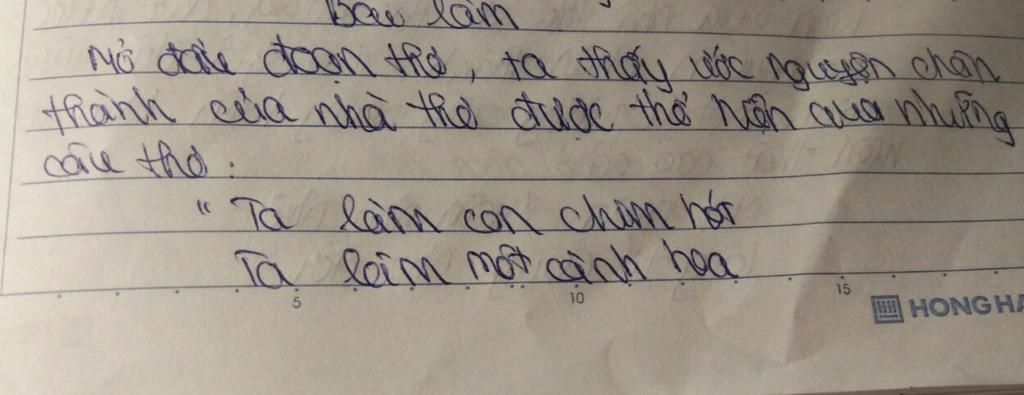 Bài làm
Mở đầu đoạn thơ, ta thấy ước nguyện chân
thành của nhà thơ được thể hiện qua những
câu thơ:
" Ta làm con chim hót
Ta làm một cành hoa
5 10 15
HONG HA